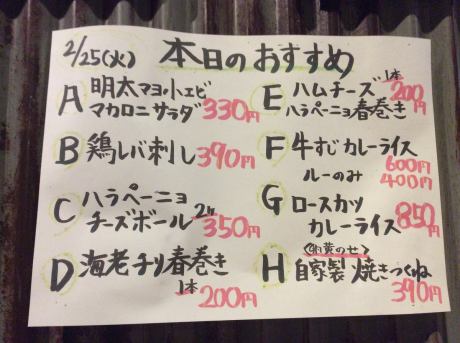 2/25(火) 本日のおすすめ
A 明太マヨ小エビ
マカロニサラダ 330円
B 鶏レバ刺し 390円
C ハラペーニョ
チーズボール 2ケ 350円
D 海老チリ春巻き
1本 200円
E ハムチーズ 1本 200円
ハラペーニョ春巻き
F 牛すじカレーライス
600円
ルーのみ 400円
G ロースカツ 850円
カレーライス
H 〈卵黄のせ〉
自家製 焼きつくね
390円